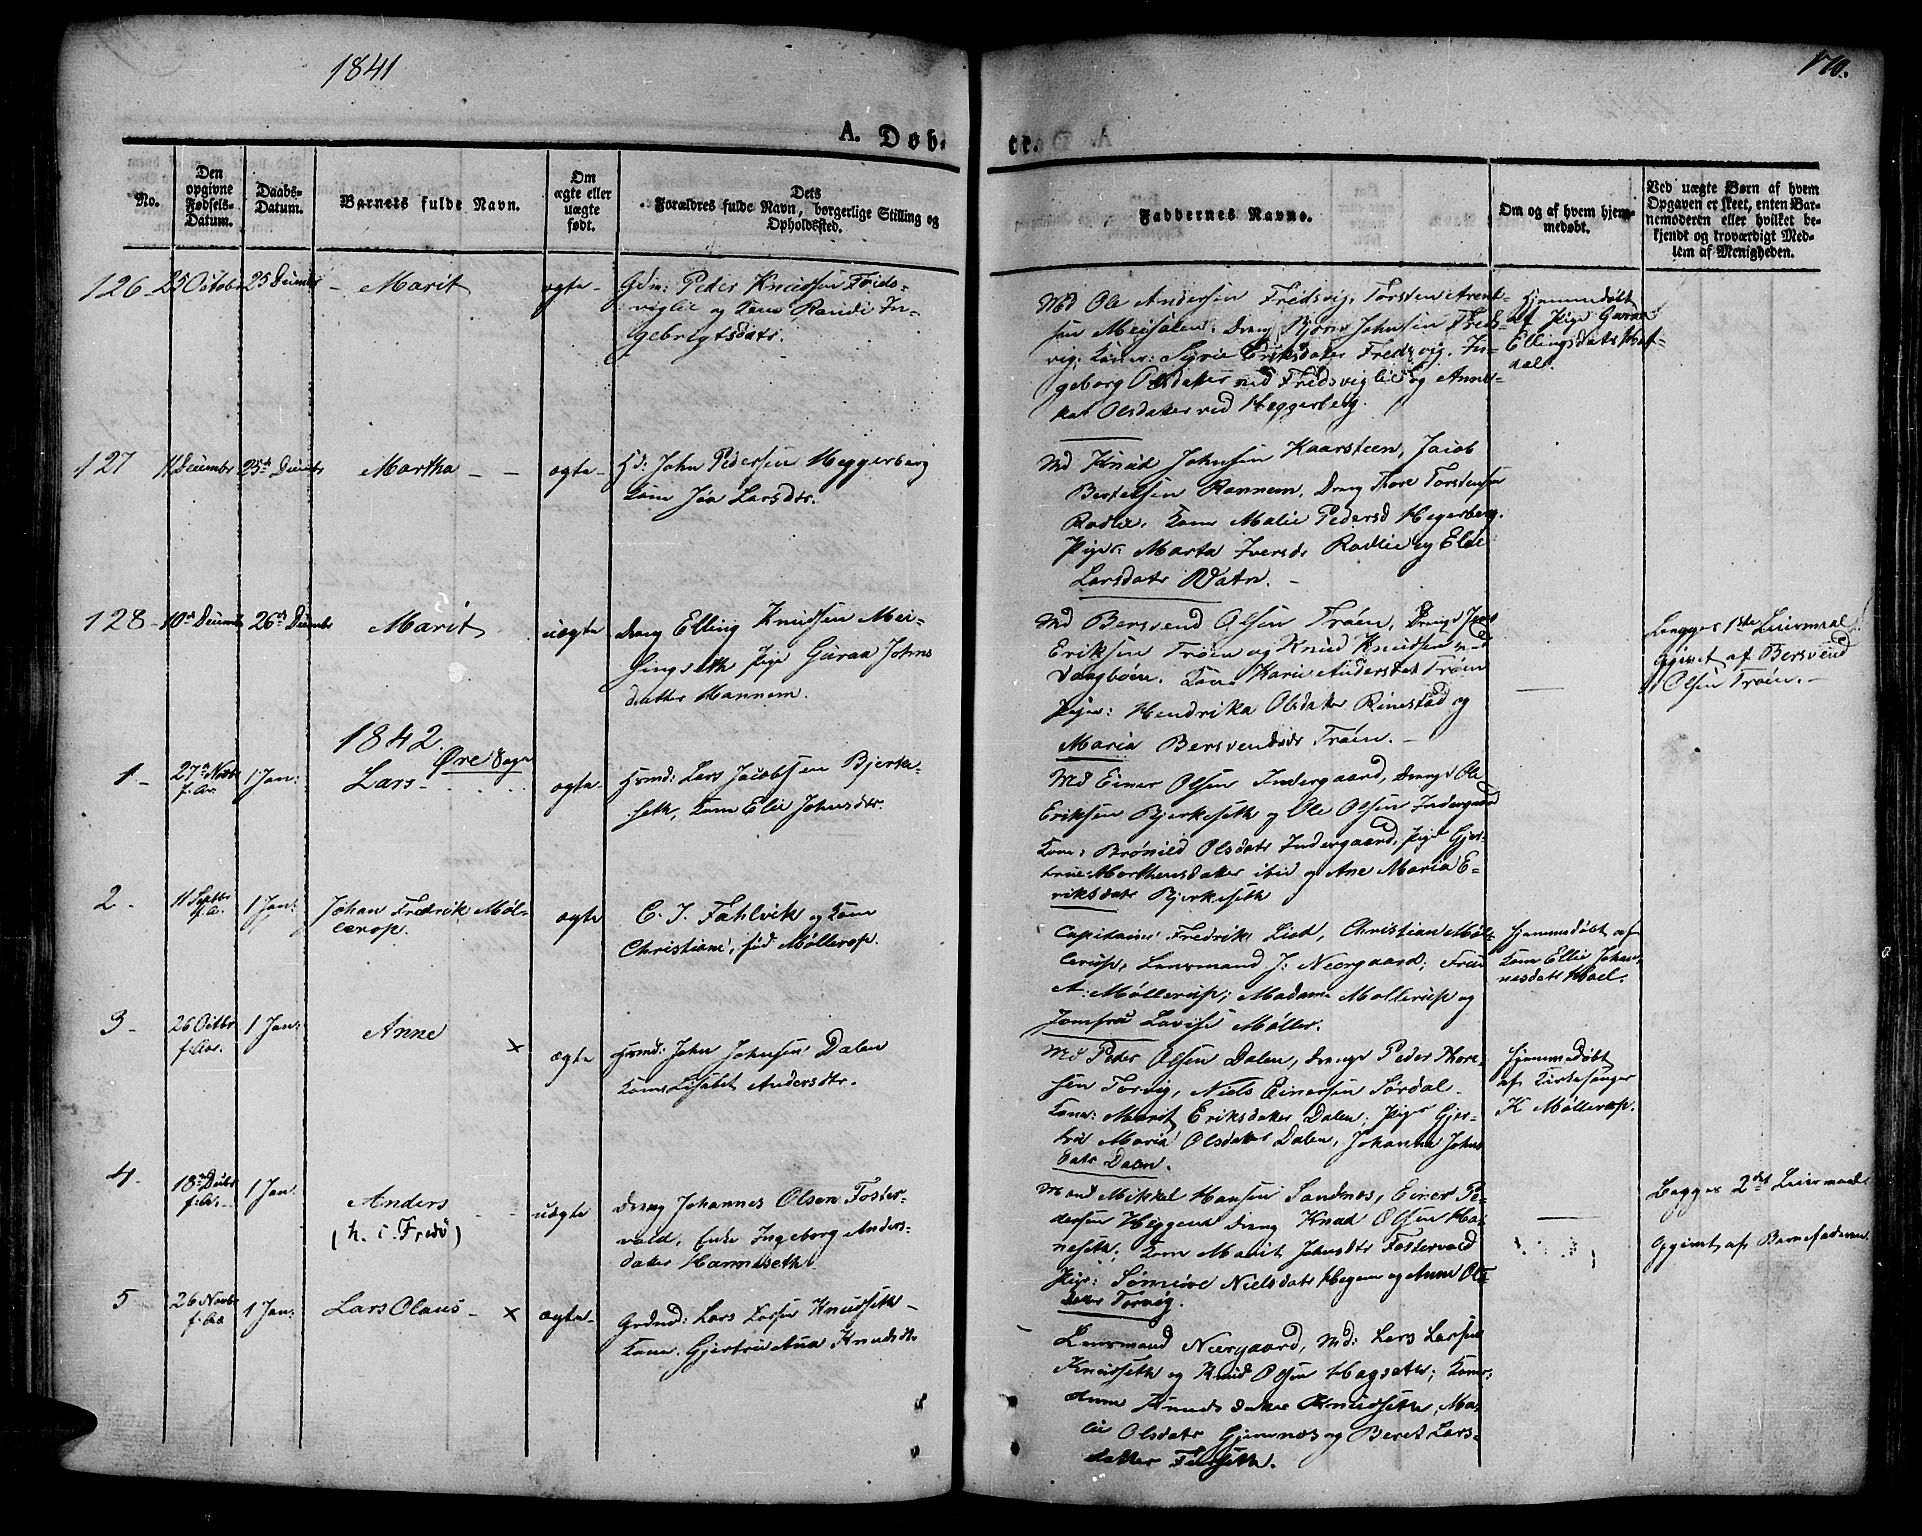 1841
170.
A. Døb-
te.
No.
Den
opgivne
Fødsels-
Datum.
Daabs-
Datum.
Barnets fulde Navn.
Om
ægte eller
uægte
født.
Dets
Forældres fulde Navn, borgerlige Stilling og
Opholdssted.
Faddernes Navne.
Om og af hvem hjem-
medøbt.
Ved uægte Børn af hvem
Opgaven er skeet, enten Bar-
nemoderen eller hvilket be-
kjendt og troværdigt Med-
lem af Menigheden.
126
25 Octobr
25 Decembr
Marit
ægte
Gdm: Peder Knudsen Freds-
viglie og Kone Randi In-
gebrigtsdatr.
Md Ole Andersen Fredsvig, Torsten Arent-
sen Meisalen, Dreng Bjørn Johnsen Freds-
vig, Koner: Sigrie Eriksdatter Fredsvig, In-
geborg Olsdatter ved Fredsviglie og Anne-
Olsdatter ved Heggerberg.
Hjemmedøbt
af Pige Guraa
Ellingsdatr
dal.
127
11 Decembr
25de Decembr
Martha
ægte
Hd: John Pedersen Heggerberg
Kone Larsdtr.
Md Knud Johnsen Kaarsteen, Jacob
Bertelsen Rannem, Dreng Thore Torstensen
Rodlie, Kone Malie Pedersd Hegerberg.
Piger: Marta Iversdr Rodlie og Elie
Larsdatr Vatn.
128
10de Decembr
26de Decembr
Marit
uægte
Dreng Elling Knudsen Mei-
singseth Pige Guraa Johns
datter Hannem.
Md Bersvend Olsen Trøen, Drenge
Eriksen Trøen og Knud Knudsen
Kone Karie Andersdat Trøen
Piger: Hendrika Olsdatter Rinestad og
Maria Bersvendsdr Trøen.
Begges 1ste Leiermaal
Opgivet af Bersvend
Olsen Trøen.
1842.
Øre Sogn
1
27de Novbr
f. Aar.
1 Jan:
Lars
ægte
Hsmd: Lars Jacobsen Bjerke-
seth, Kone Elie Johnsdtr.
Md Einer Olsen Indergaard, Drenge Ole
Eriksen Bjerkeseth og Ole Olsen Indergaard
Kone: Brønild Olsdatr Indergaard, Pige Gjer-
true Morthensdatter ibid og Ane Maria E-
riksdatr Bjerkeseth
2
11 Septbr
f. A.
1 Jan:
Johan Fredrik Møl-
lerop.
ægte
C. J. Fahlvik og Kone
Christiane, fød Møllerop.
Capitaine Fredrik Lied, Christian Møl-
lerup, Lensmand J: Neergaard; Frue
A: Møllerup; Madame Møllerup og
Jomfru Lovise Møller.
Hjemmedøbt af
Kone Ellie Johan-
nesdatr Hoel.
3
26 Octbr
f. Aar.
1 Jan:
Anne
×
ægte
Hsmd: John Johnsen Dalen
Kone Lisabet Andersdtr.
Md Peder Olsen Dalen, Drenge Peder Thore-
sen Torvig, Niels Einersen Sørdal
Kone: Marit Eriksdatter Dalen; Piger Gjer-
true Maria Olsdatter Dalen, Johanna Johns
datr Dalen.
Hjemmedøbt
af Kirkesanger
K Møllerop.
4
18de Decbr
f. Ar.
1 Jan
Anders
(h. i Fredø)
uægte
Dreng Johannes Olsen Foster-
vold, Enke Ingeborg Anders-
datter Hanniseth
Mand Mikkel Hansen Sandnes, Einer Pe-
dersen Heggem Dreng Knud Olsen
neseth, Kone Marit Johnsdtr Fostervold
Pige: Nielsdatr Hegem og Anne Ols-
datter Torvig.
Begges 2det Leiermaal
Opgivet af Barnefaderen
5
26 Novbr
f. Aar
1 Jan:
Lars Olaus
×
ægte
Grdmd: Lars Larsen Knudseth
Kone. Gjertrue Ana Knudsdtr
Lensmand Neergaard, Md: Lars Larsen
Knudseth og Knud Olsen Hagseter; Koner:
Anne Knudsdatter Knudseth, Ma-
lie Olsdatr Gjemnæs og Beret Lars-
datter Fuglseth.